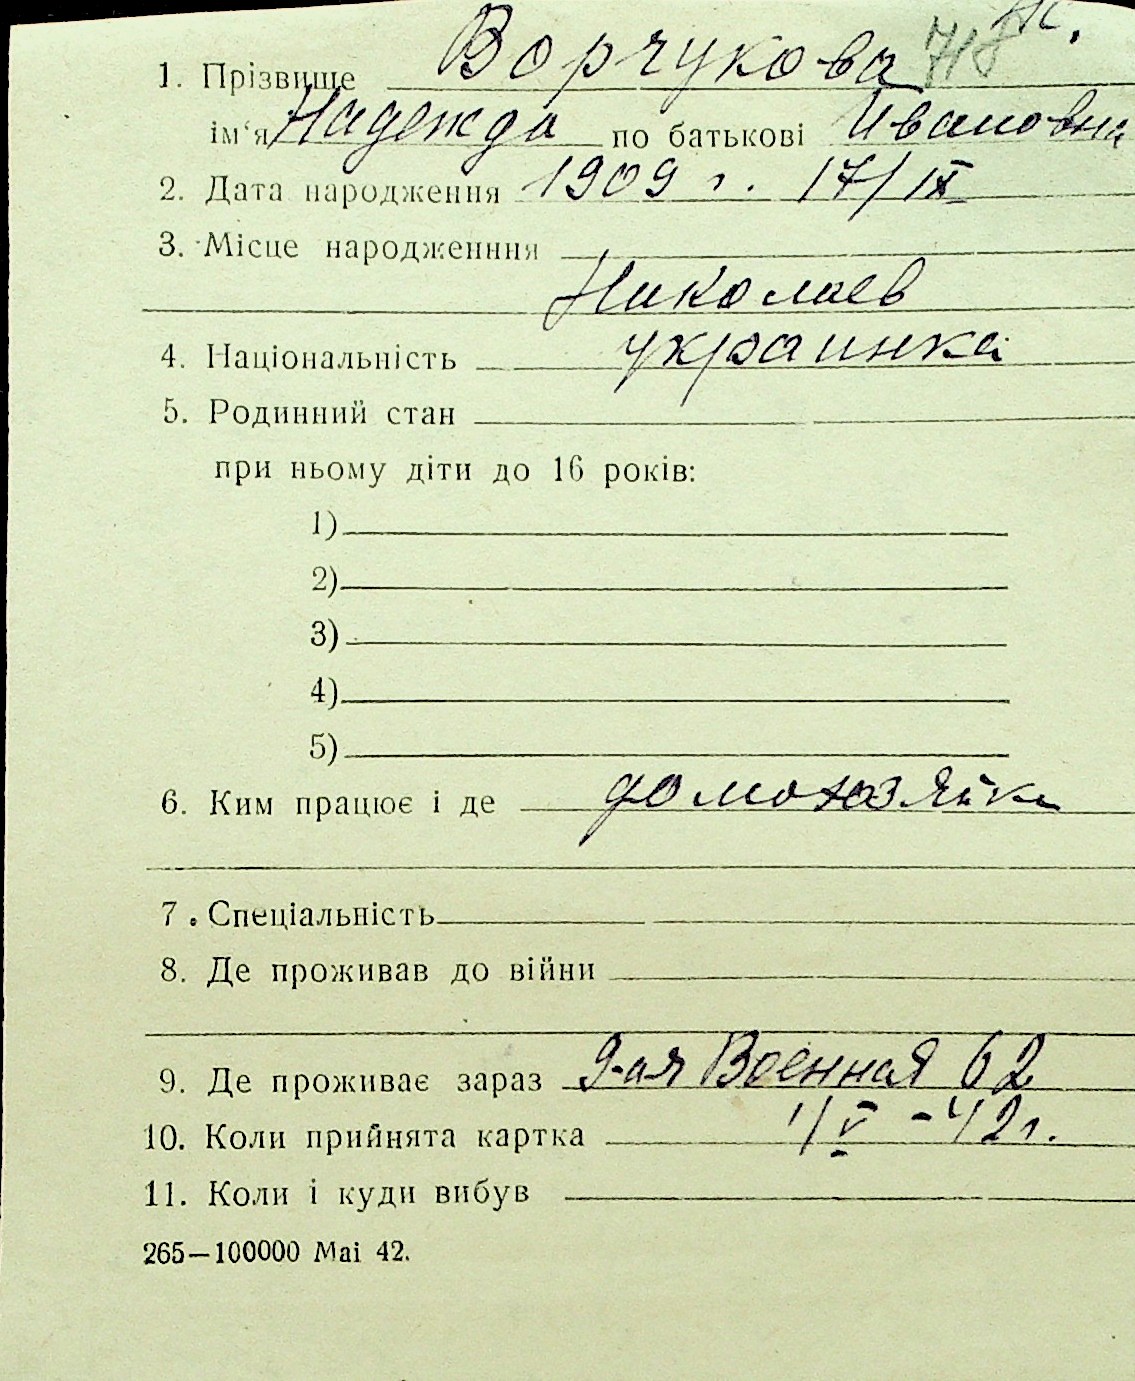 1. Прізвище Ворчукова 718
ім'я Надежда по батькові Ивановна
2. Дата народження 1909 г. 17/IX
3. Місце народженння
Николаев
4. Національність украинка
5. Родинний стан
при ньому діти до 16 років:
1)
2)
3)
4)
5)
6. Ким працює і де домохозяйка
7. Спеціальність
8. Де проживав до війни
9. Де проживає зараз 9-ая Военная 62
10. Коли прийнята картка 1/V - 42 г.
11. Коли і куди вибув
265—100000 Mai 42.